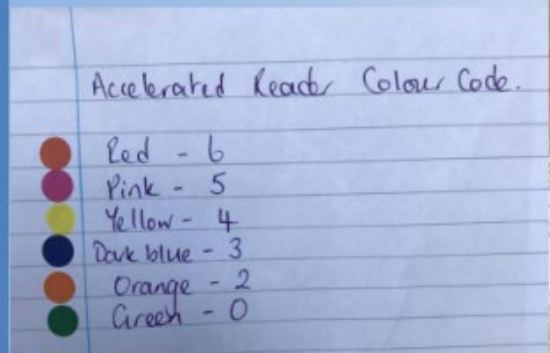 Accelerated Reader Colour Code.
Red - 6
Pink - 5
Yellow - 4
Dark blue - 3
Orange - 2
Green - 0